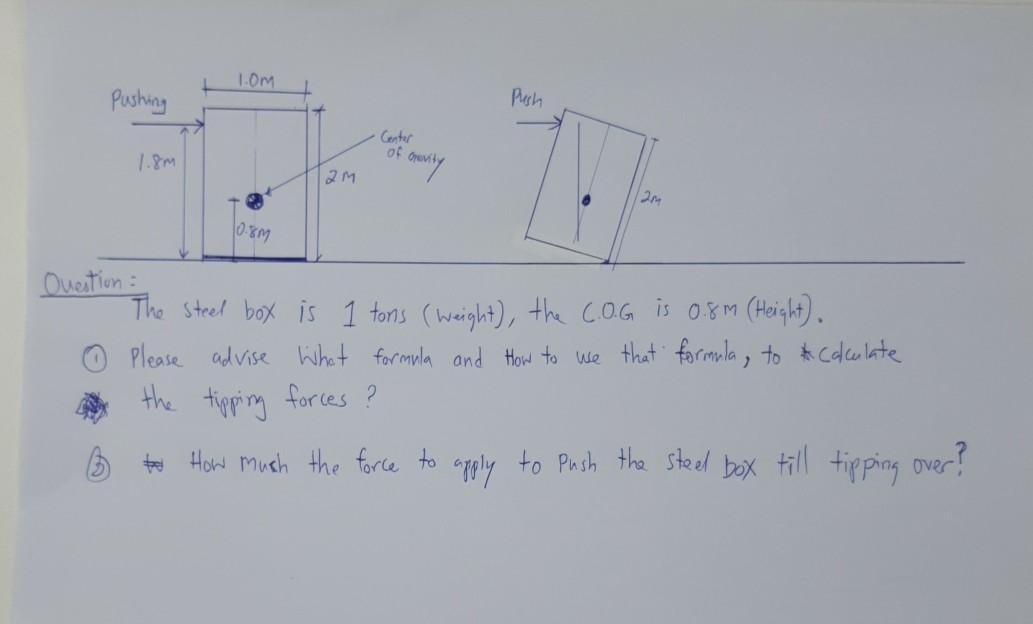 1.0M
Pushing
1.8M
Center
of Gravity
2M
0.8M
Push
2M
Question:
The steel box is 1 tons (weight), the C.O.G is 0.8M (Height).
① Please advise What formula and How to use that formula, to calculate
the tipping forces?
② How mush the force to apply to Push the steel box till tipping over?